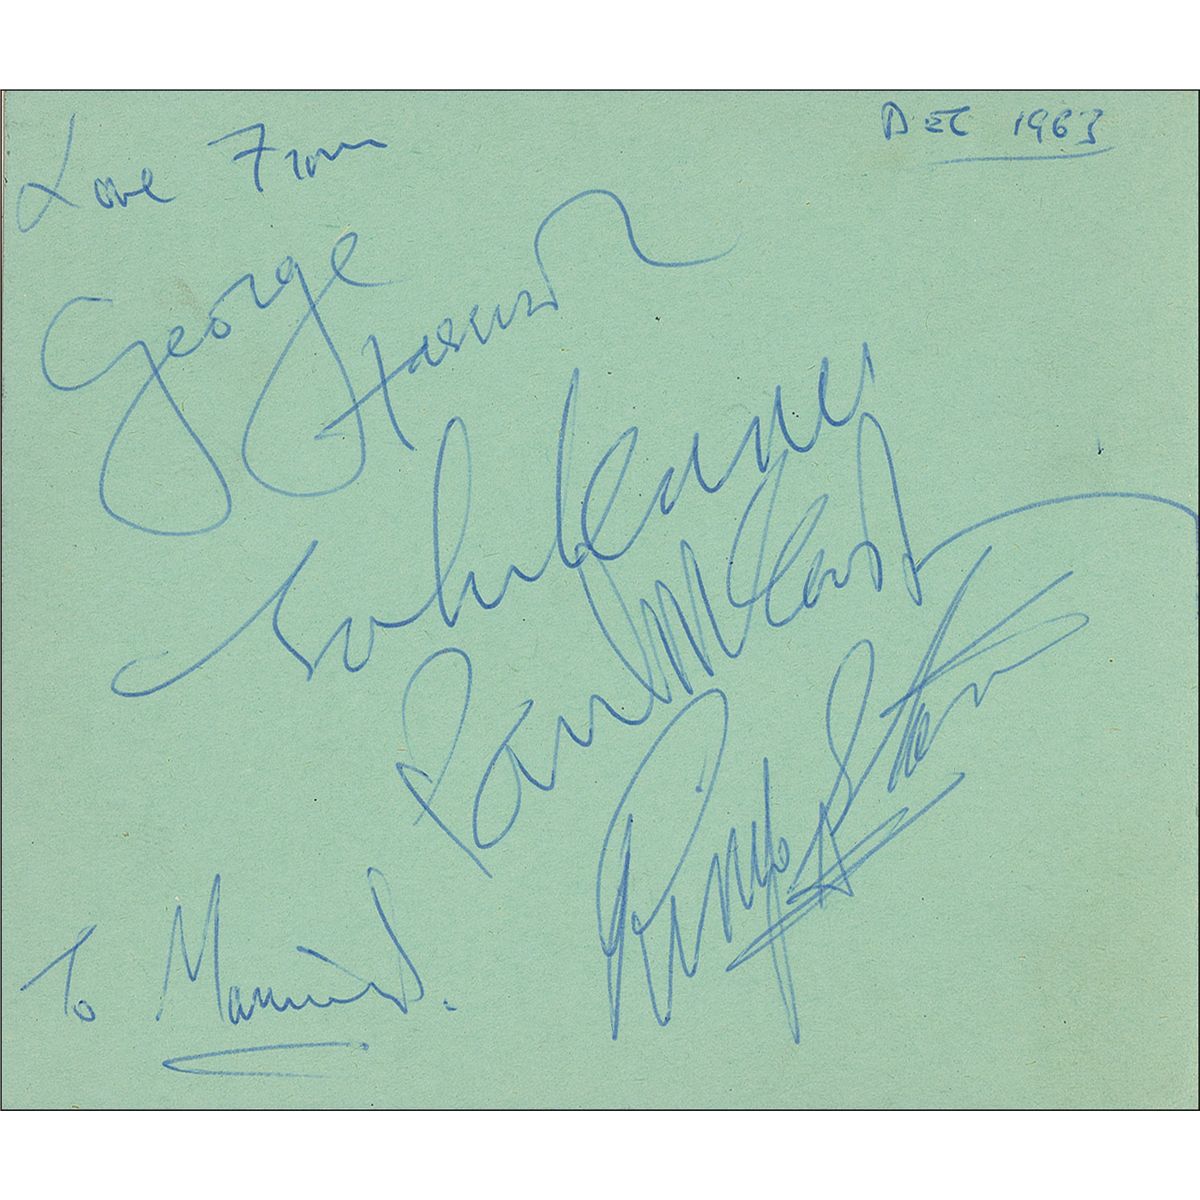 DEC 1963
Love From
George Harrison
John Lennon
Paul McCartney
Ringo Starr
To